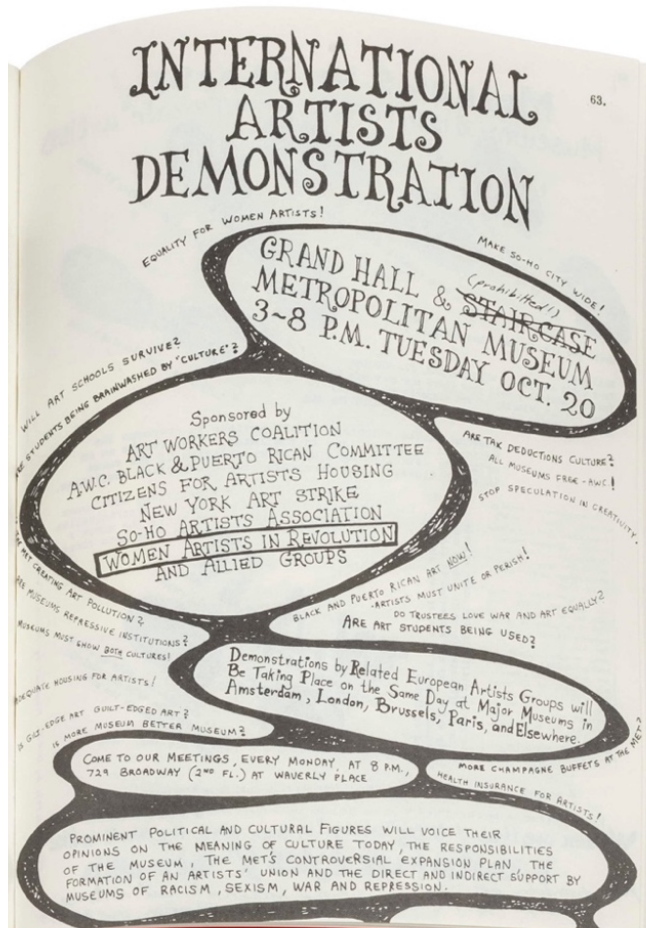 63.
INTERNATIONAL
ARTISTS
DEMONSTRATION
EQUALITY FOR WOMEN ARTISTS!
MAKE SO-HO CITY WIDE!
GRAND HALL & STAIRCASE
(prohibitted!)
METROPOLITAN MUSEUM
3~8 P.M. TUESDAY OCT. 20
WILL ART SCHOOLS SURVIVE?
STUDENTS BEING BRAINWASHED BY "CULTURE"?
Sponsored by
ART WORKERS COALITION
A.W.C. BLACK & PUERTO RICAN COMMITTEE
CITIZENS FOR ARTISTS HOUSING
NEW YORK ART STRIKE
SO-HO ARTISTS ASSOCIATION
WOMEN ARTISTS IN REVOLUTION
AND ALLIED GROUPS
ARE TAX DEDUCTIONS CULTURE?
ALL MUSEUMS FREE - AWC!
STOP SPECULATION IN CREATIVITY.
MET CREATING ART POLLUTION?
MUSEUMS REPRESSIVE INSTITUTIONS?
MUSEUMS MUST SHOW BOTH CULTURES!
BLACK AND PUERTO RICAN ART NOW!
-ARTISTS MUST UNITE OR PERISH!
DO TRUSTEES LOVE WAR AND ART EQUALLY?
ARE ART STUDENTS BEING USED?
ADEQUATE HOUSING FOR ARTISTS!
IS GILT-EDGE ART GUILT-EDGED ART?
IS MORE MUSEUM BETTER MUSEUM?
Demonstrations by Related European Artists Groups will
Be Taking Place on the Same Day at Major Museums in
Amsterdam, London, Brussels, Paris, and Elsewhere.
COME TO OUR MEETINGS, EVERY MONDAY, AT 8 P.M.,
729 BROADWAY (2ND FL.) AT WAVERLY PLACE
MORE CHAMPAGNE BUFFETS AT THE MET?
HEALTH INSURANCE FOR ARTISTS!
PROMINENT POLITICAL AND CULTURAL FIGURES WILL VOICE THEIR
OPINIONS ON THE MEANING OF CULTURE TODAY, THE RESPONSIBILITIES
OF THE MUSEUM, THE MET'S CONTROVERSIAL EXPANSION PLAN, THE
FORMATION OF AN ARTISTS' UNION AND THE DIRECT AND INDIRECT SUPPORT BY
MUSEUMS OF RACISM, SEXISM, WAR AND REPRESSION.